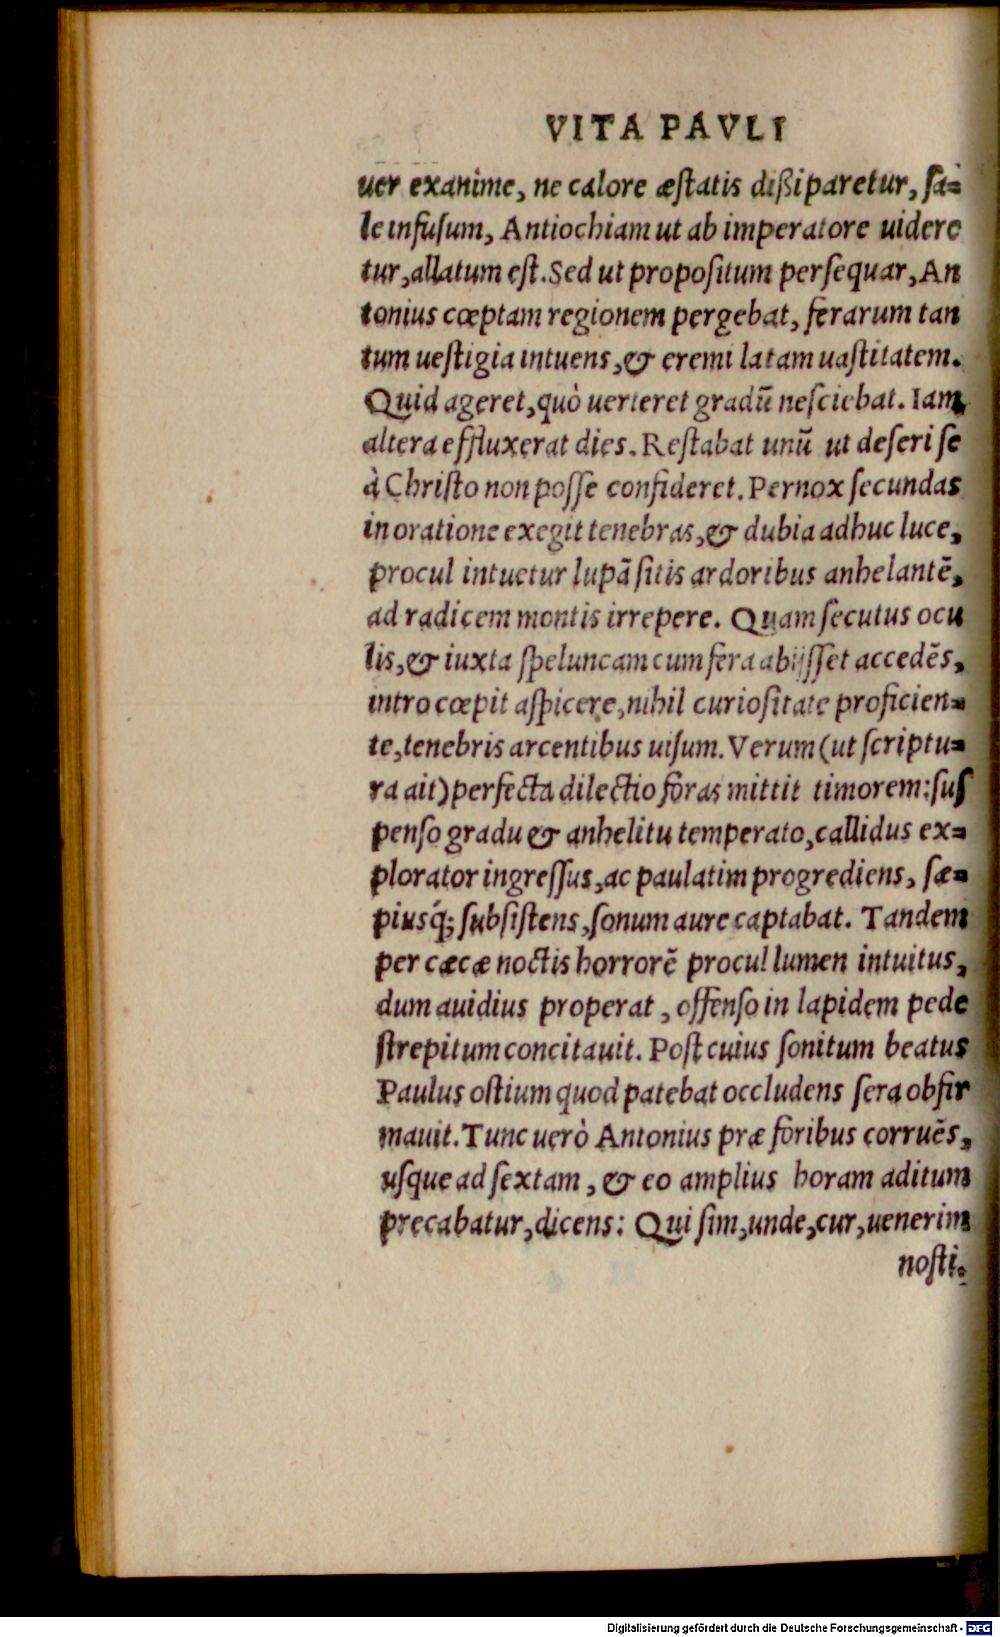 VITA PAVLI
uer exanime, ne calore æſtatis dißiparetur, ſa-
le infuſum, Antiochiam ut ab imperatore uidere
tur, allatum eſt. Sed ut propoſitum perſequar, An
tonius cœptam regionem pergebat, ferarum tan
tum ueſtigia intuens, & eremi latam uaſtitatem.
Quid ageret, quò uerteret gradū neſciebat. Iam
altera effluxerat dies. Reſtabat unū ut deſeri ſe
à Chriſto non poſſe confideret. Pernox ſecundas
in oratione exegit tenebras, & dubia adhuc luce,
procul intuetur lupā ſitis ardoribus anhelantē,
ad radicem montis irrepere. Quam ſecutus ocu
lis, & iuxta ſpeluncam cum fera abijſſet accedēs,
intro cœpit aſpicere, nihil curioſitate proficien-
te, tenebris arcentibus uiſum. Verum (ut ſcriptu-
ra ait) perfecta dilectio foras mittit timorem: ſuſ
penſo gradu & anhelitu temperato, callidus ex-
plorator ingreſſus, ac paulatim progrediens, ſæ-
piusq́; ſubſiſtens, ſonum aure captabat. Tandem
per cæcæ noctis horrorē procul lumen intuitus,
dum auidius properat, offenſo in lapidem pede
ſtrepitum concitauit. Poſt cuius ſonitum beatus
Paulus oſtium quod patebat occludens ſera obfir
mauit. Tunc uerò Antonius præ foribus corruēs,
uſque ad ſextam, & eo amplius horam aditum
precabatur, dicens: Qui ſim, unde, cur, uenerim
noſti.
Digitalisierung gefördert durch die Deutsche Forschungsgemeinschaft - DFG